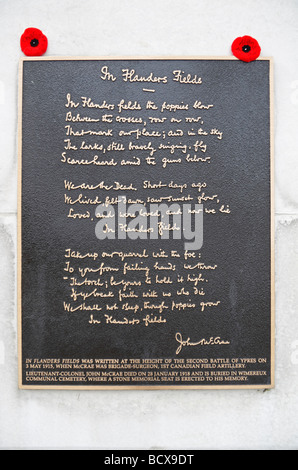 In Flanders Fields
In Flanders fields the poppies blow
Between the crosses, row on row,
That mark our place; and in the sky
The larks, still bravely singing, fly
Scarce heard amid the guns below.
We are the Dead. Short days ago
We lived, felt dawn, saw sunset glow,
Loved, and were loved, and now we lie
In Flanders fields.
Take up our quarrel with the foe:
To you from failing hands we throw
The torch; be yours to hold it high.
If ye break faith with us who die
We shall not sleep, though poppies grow
In Flanders fields
John McCrae
IN FLANDERS FIELDS WAS WRITTEN AT THE HEIGHT OF THE SECOND BATTLE OF YPRES ON
3 MAY 1915, WHEN McCRAE WAS BRIGADE-SURGEON, 1ST CANADIAN FIELD ARTILLERY.
LIEUTENANT-COLONEL JOHN McCRAE DIED ON 28 JANUARY 1918 AND IS BURIED IN WIMEREUX
COMMUNAL CEMETERY, WHERE A STONE MEMORIAL SEAT IS ERECTED TO HIS MEMORY.
alamy
BCX9DT
www.alamy.com